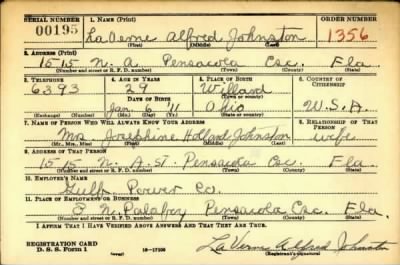 SERIAL NUMBER 1. NAME (Print) ORDER NUMBER
00195 LaVerne Alfred Johnston 1356
(First) (Middle) (Last)
2. ADDRESS (Print)
1515 N. A. Pensacola Esc. Fla.
(Number and street or R. F. D. number) (Town) (County) (State)
3. TELEPHONE 4. AGE IN YEARS 5. PLACE OF BIRTH 6. COUNTRY OF CITIZENSHIP
6393 29 Willard
DATE OF BIRTH (Town or county)
Jan. 6 11 Ohio U.S.A.
(Exchange) (Number) (Mo.) (Day) (Yr.) (State or country)
7. NAME OF PERSON WHO WILL ALWAYS KNOW YOUR ADDRESS 8. RELATIONSHIP OF THAT PERSON
Mrs Josephine Holland Johnston wife
(Mr., Mrs., Miss) (First) (Middle) (Last)
9. ADDRESS OF THAT PERSON
1515 N. A. ST. Pensacola Esc. Fla.
(Number and street or R. F. D. number) (Town) (County) (State)
10. EMPLOYER'S NAME
Gulf Power Co.
11. PLACE OF EMPLOYMENT OR BUSINESS
3 N. Palafox Pensacola Esc. Fla.
(Number and street or R. F. D. number) (Town) (County) (State)
I AFFIRM THAT I HAVE VERIFIED ABOVE ANSWERS AND THAT THEY ARE TRUE.
REGISTRATION CARD
D. S. S. Form 1 16—17105 LaVerne Alfred Johnston
(Registrant's signature)